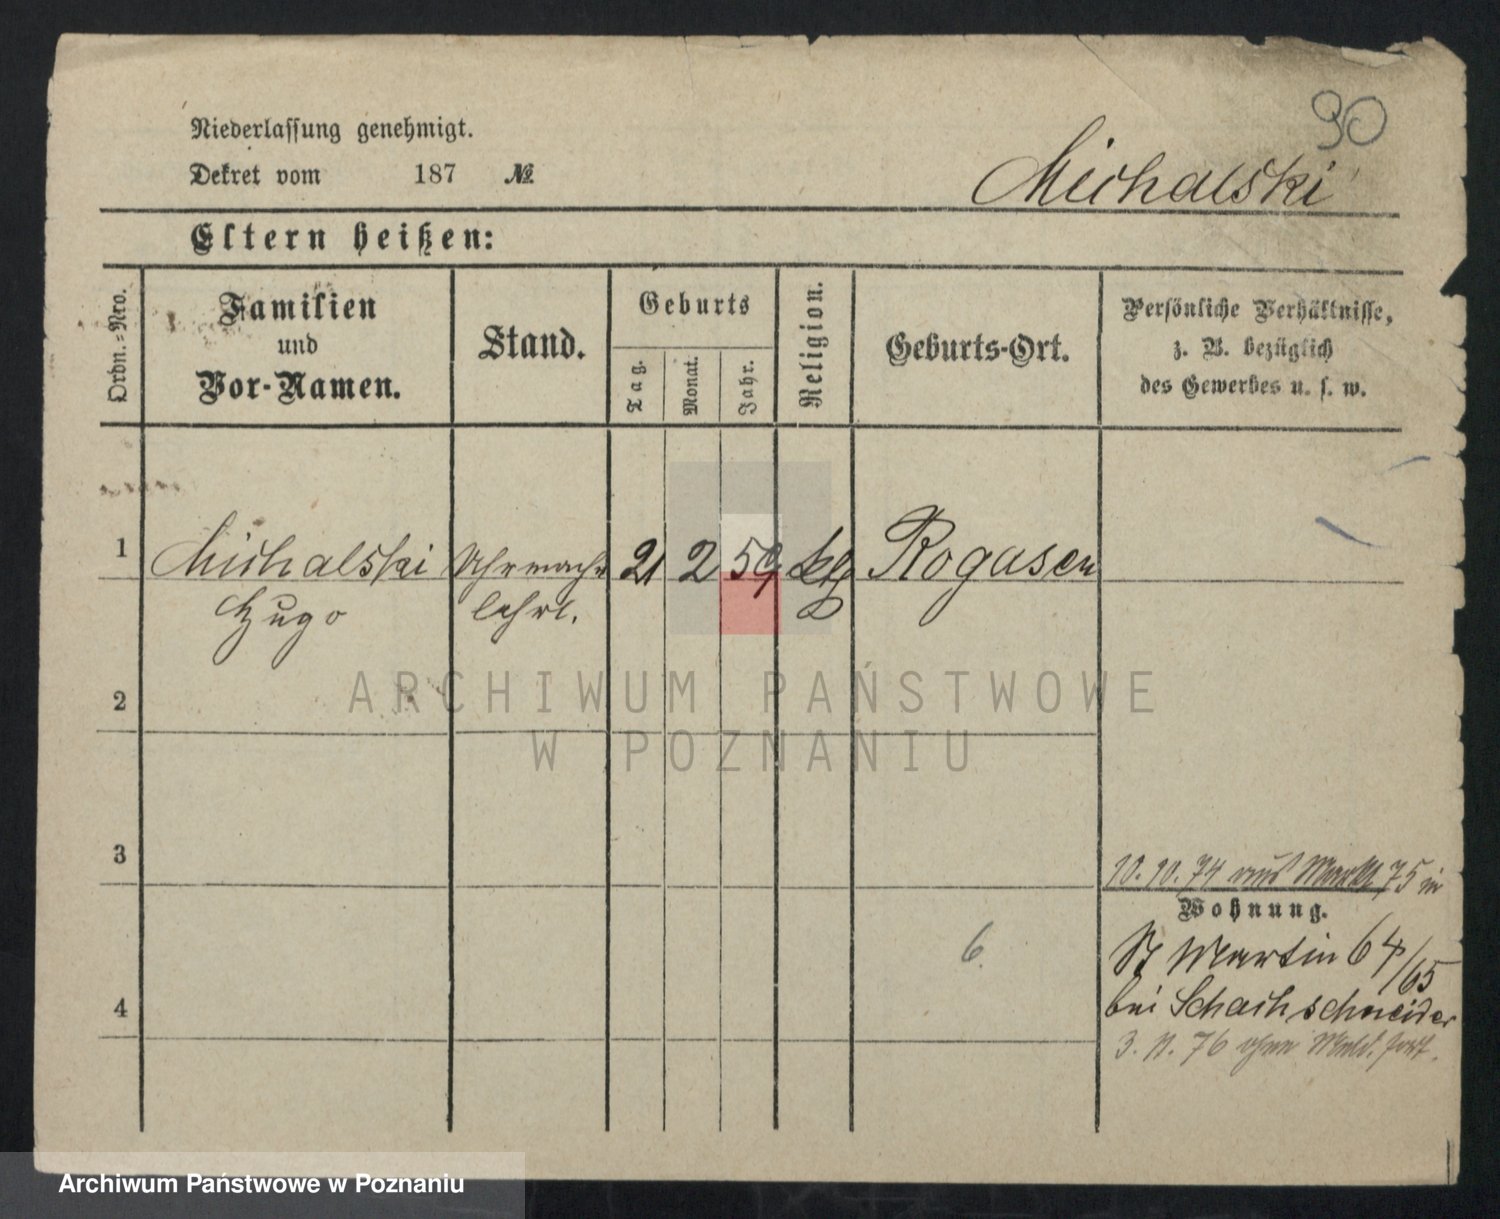 90
Niederlassung genehmigt.
Dekret vom 187 №
Michalski
Eltern heißen:
Ordn.-Nro.
Familien
und
Vor-Namen.
Stand.
Geburts
Tag.
Monat.
Jahr.
Religion.
Geburts-Ort.
Persönliche Verhältnisse,
z. B. bezüglich
des Gewerbes u. s. w.
1 Michalski Uhrmach 21 2 59 kth Rogasen
Hugo lehrl.
2
ARCHIWUM PAŃSTWOWE
W POZNANIU
3
10. 10. 74 aus Markt 75 in
Wohnung.
6.
St Martin 64/65
4
bei Schachschneider
3. 11. 76 ohne Meld. fort.
Archiwum Państwowe w Poznaniu